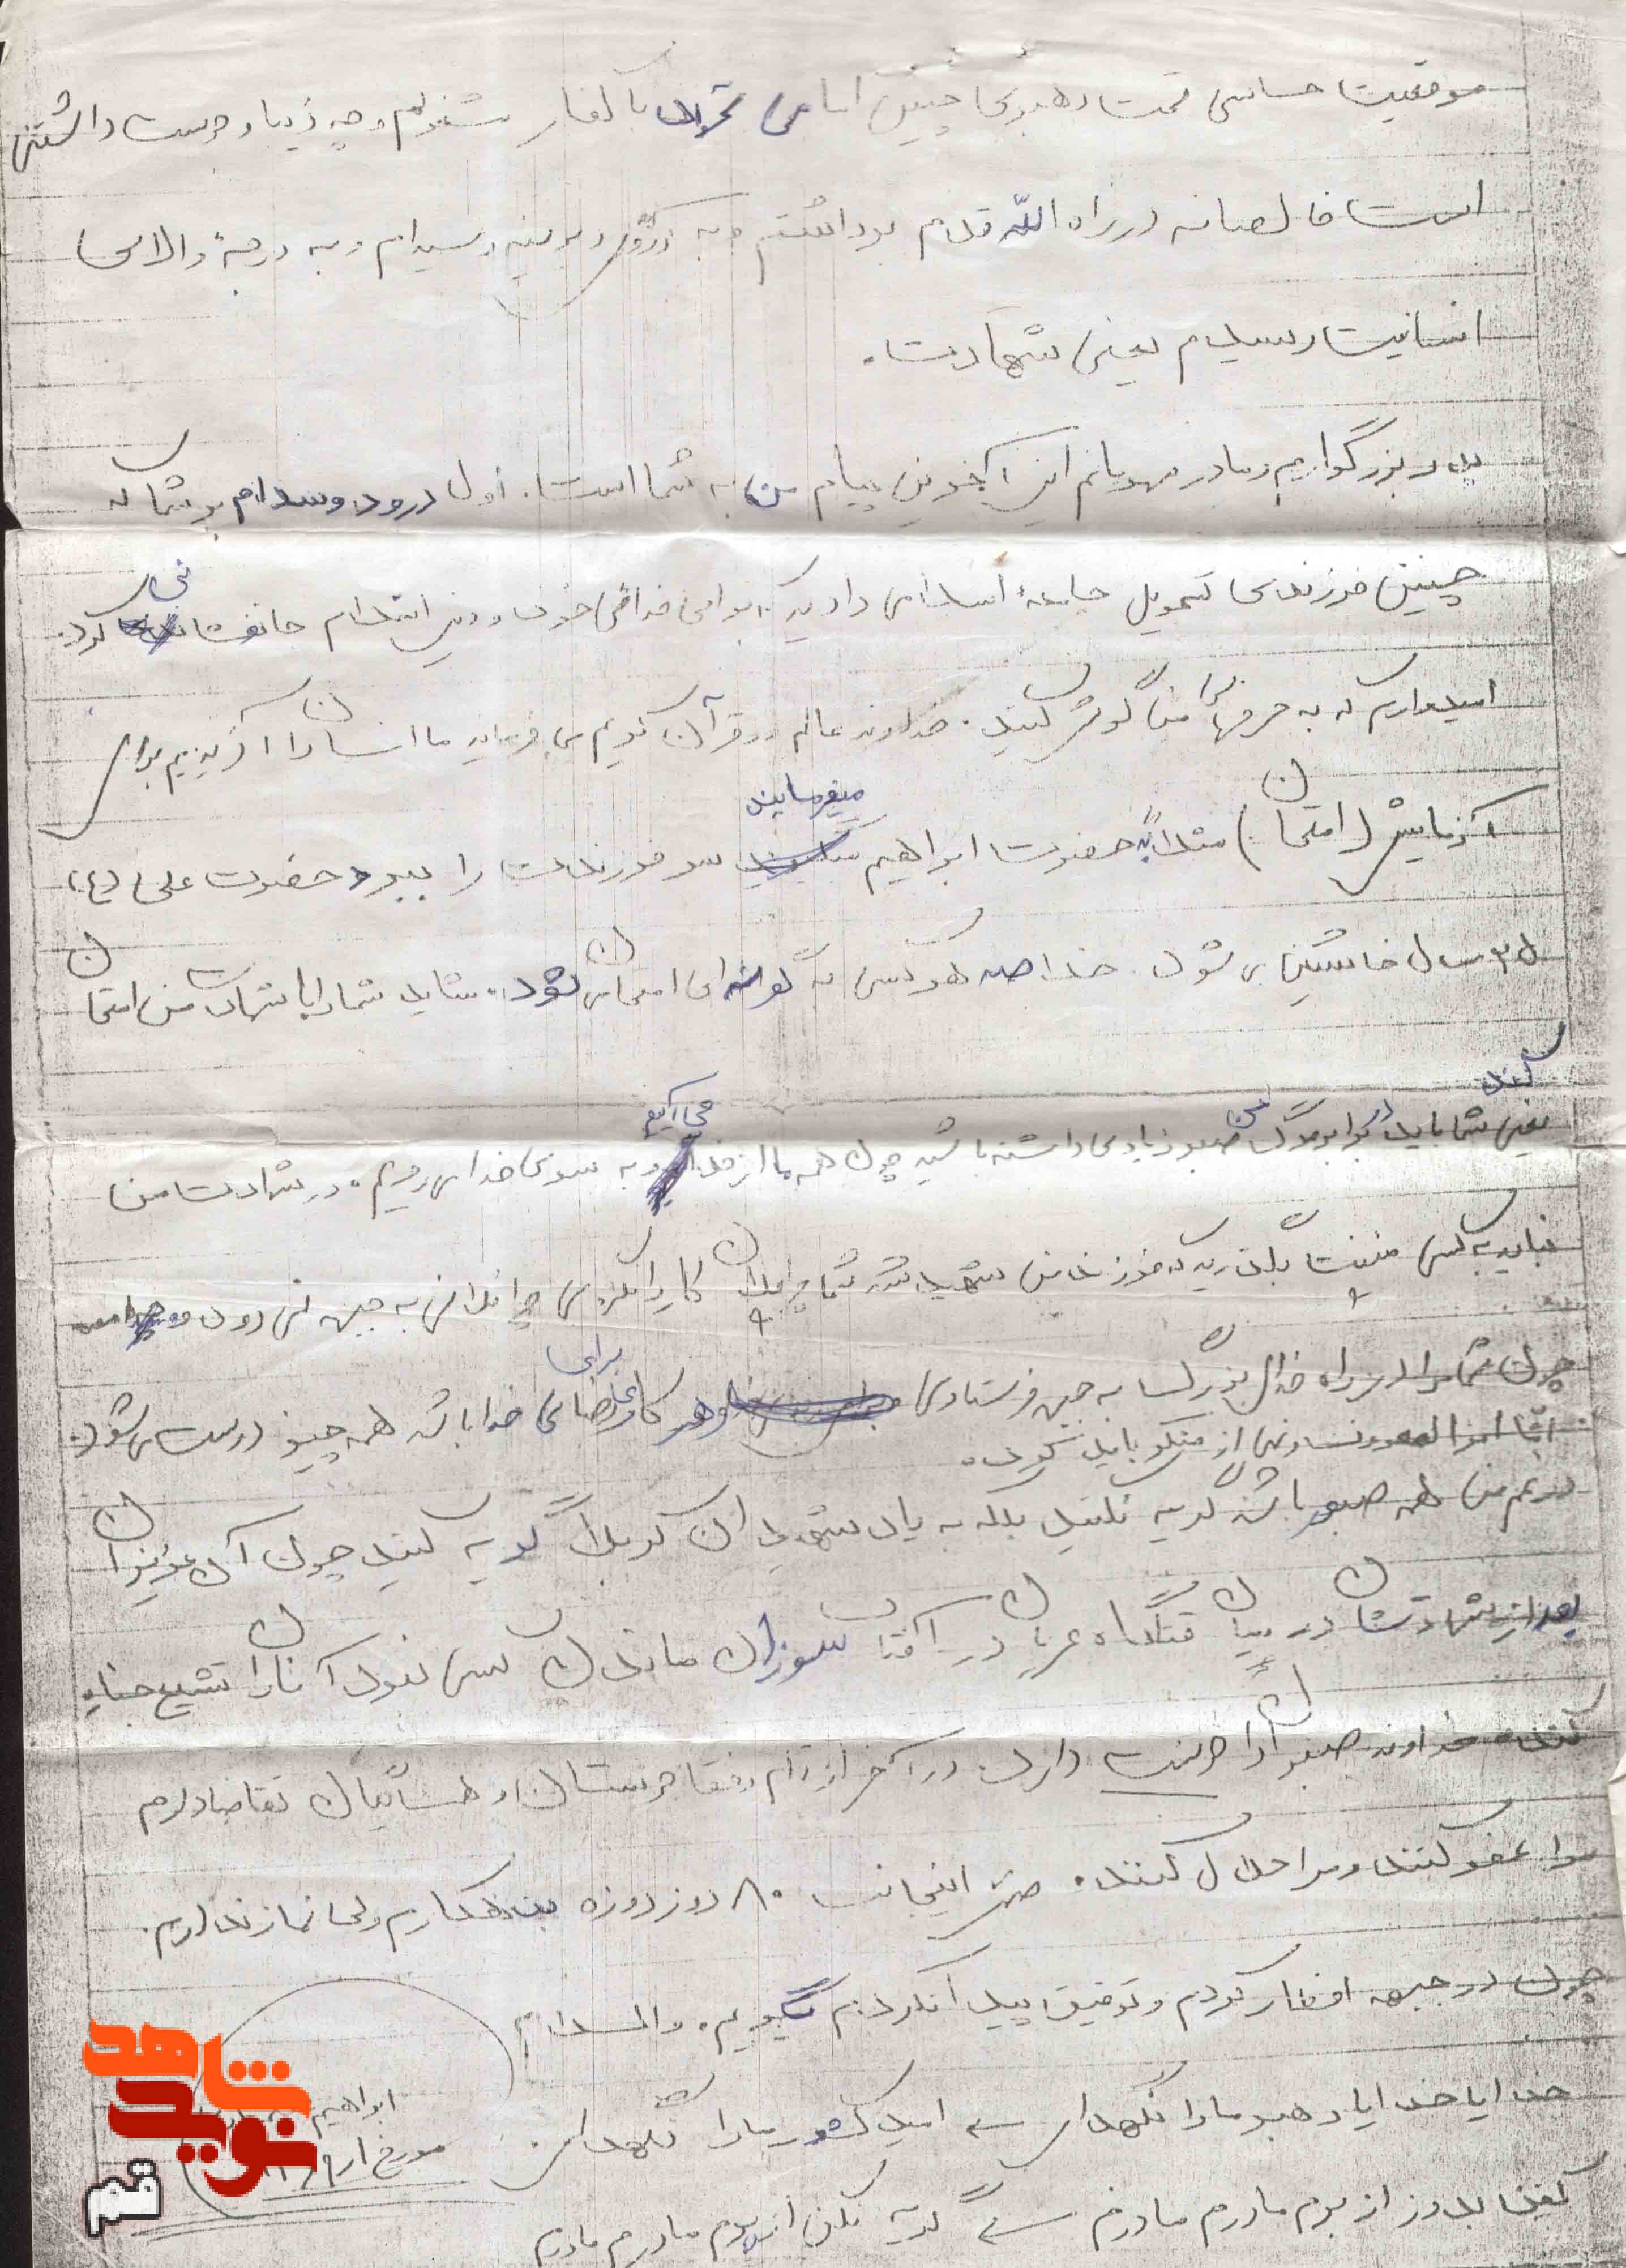 موقعیت حساسی تحت رهبری چنین امامی با کفار شدم و چه زیبا و دوست داشتنی
است خالصانه در راه الله قدم برداشتم و به آرزوی دیرینه رسیدم و به درجهٔ والای
انسانیت رسیدم یعنی شهادت.
پدر بزرگوارم و مادر مهربانم این آخرین پیام من به شما است. اول درود و سلام بر شما که
چنین فرزندی تحویل جامعهٔ اسلامی دادید که برای خدای خود و دین اسلام جانفشانی کرد.
امیدوارم که به حرفهای من گوش کنید. خداوند عالم در قرآن کریم می فرماید ما انسان را آفریدیم برای
آزمایش (امتحان) مثلاً به حضرت ابراهیم میفرمایند سر فرزندت را ببر و حضرت علی (ع)
۲۵ سال خانه نشین می شود. خلاصه هر کسی به گونه ای امتحان می شود. شاید شما را با شهادت من امتحان
کنند
یعنی شما باید در برابر مرگ من صبر زیادی داشته باشید چون همه ما از خدا می آییم و به سوی خدا می رویم. در شهادت من
نباید به کسی منت بگذارید که فرزند من شهید شده شما چرا فلان کار را نکردی چرا فلانی به جبهه نمی رود و
چون شما در راه خدای بزرگ به جبهه فرستادی و هر کاری برای رضای خدا باشد همه چیز درست می شود.
امّا امر بالمعروف و نهی از منکر باید کرد.
در غم من همه صبور باشند گریه نکنید بلکه به یاد شهیدان کربلا گریه کنید چون آن عزیزان
بعد از شهادتشان در میان قتلگاه عریان در آفتاب سوزان ماندند کسی نبود آنان را تشییع جنازه
کند. خداوند صبران را دوست دارد. در آخر از تمام رفقا دوستان و همسائیان تقاضا دارم
مرا عفو کنند و مرا حلال کنند. ضمن اینجانب ۸۰ روز روزه بدهکارم ولی نماز ندارم.
چون در جبهه افطار کردم و توفیق پیدا نکردم بگیرم. والسلام
خدایا خدایا رهبر ما را نگهدار امید کشور ما را نگهدار
کفن بدوز از برم مادرم مادرم گریه نکن از برم مادرم مادرم
ابراهیم
مورخ
شاهد
نوید
قم